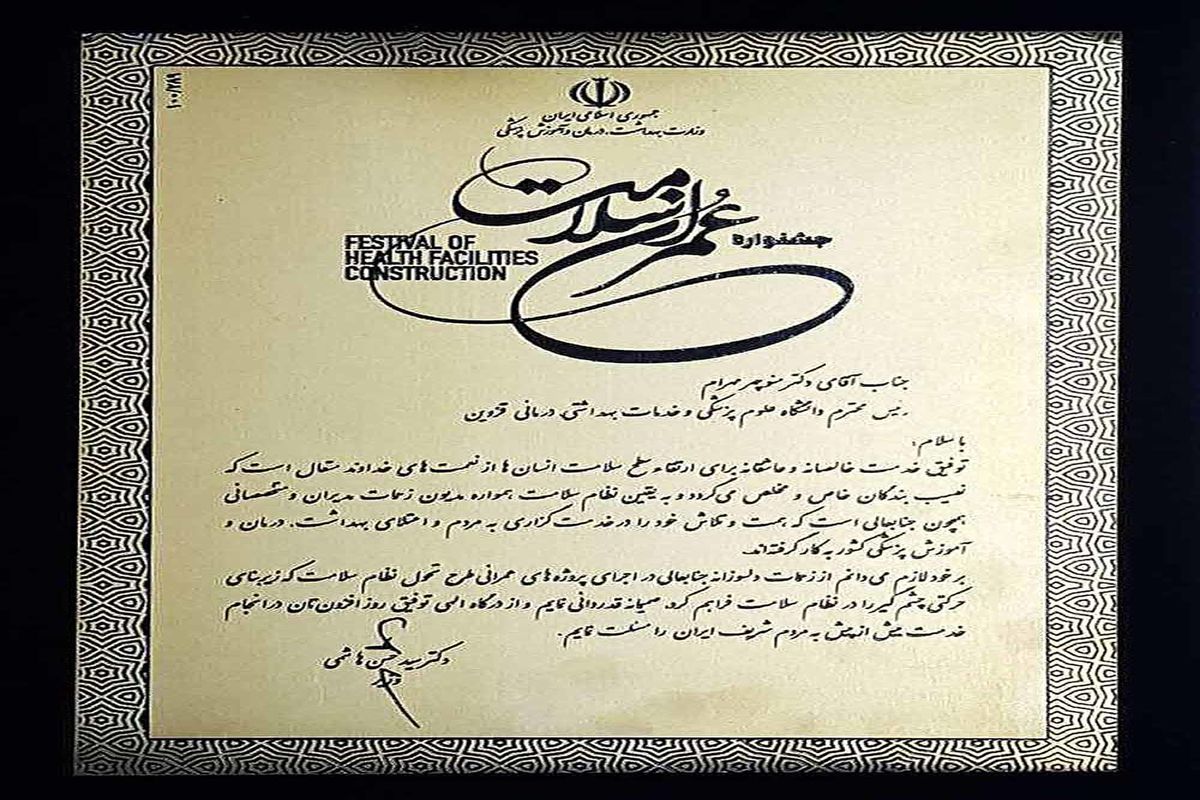 ۱۰۰/۷۸
جمهوری اسلامی ایران
وزارت بهداشت، درمان و آموزش پزشکی
جشنواره عمران سلامت
FESTIVAL OF
HEALTH FACILITIES
CONSTRUCTION
جناب آقای دکتر منوچهر مهرام
رئیس محترم دانشگاه علوم پزشکی و خدمات بهداشتی درمانی قزوین
با سلام؛
توفیق خدمت خالصانه و عاشقانه برای ارتقاء سطح سلامت انسان ها از نعمت های خداوند متعال است که
نصیب بندگان خاص و مخلص می گردد و به یقین نظام سلامت همواره مدیون زحمات مدیران و متخصصانی
همچون جنابعالی است که همت و تلاش خود را در خدمت گزاری به مردم و اعتلای بهداشت، درمان و
آموزش پزشکی کشور به کار گرفته‌اند.
بر خود لازم می دانم از زحمات دلسوزانه جنابعالی در اجرای پروژه های عمرانی طرح تحول نظام سلامت که زیربنای
حرکتی چشم گیر را در نظام سلامت فراهم کرد، صمیمانه قدردانی نمایم و از درگاه الهی توفیق روز افزون تان در انجام
خدمت بیش از پیش به مردم شریف ایران را مسئلت نمایم.
دکتر سید حسن هاشمی